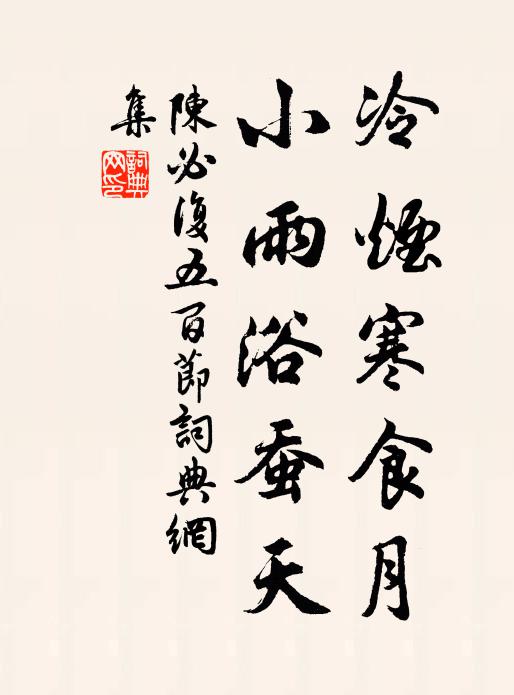 冷煙寒食月
小雨浴蚕天
陳必復五百節詞典網
集
詞典网印